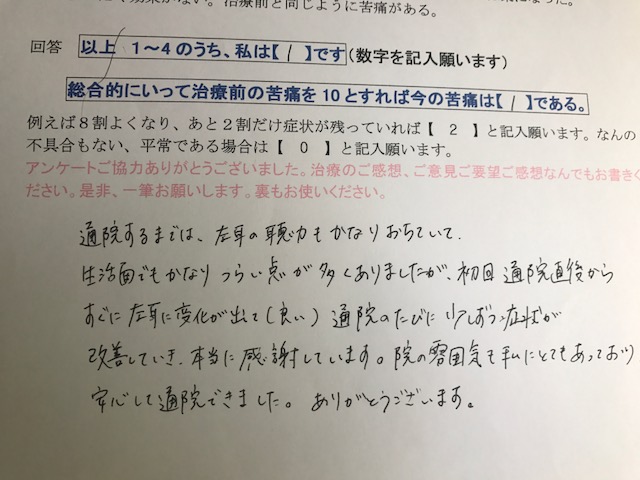 効果がない。治療前と同じように苦痛がある。
回答 以上 1～4のうち、私は【 1 】です(数字を記入願います)
総合的にいって治療前の苦痛を10とすれば今の苦痛は【 1 】である。
例えば8割よくなり、あと2割だけ症状が残っていれば【 2 】と記入願います。なんの
不具合もない、平常である場合は【 0 】と記入願います。
アンケートご協力ありがとうございました。治療のご感想、ご意見ご要望ご感想なんでもお書きく
ださい。是非、一筆お願いします。裏もお使いください。
通院するまでは、左耳の聴力もかなりおちていて、
生活面でもかなりつらい点が多くありましたが、初回通院直後から
すぐに左耳に変化が出て(良い)通院のたびに少しずつ症状が
改善していき、本当に感謝しています。院の雰囲気も私にとてもあっており
安心して通院できました。ありがとうございます。